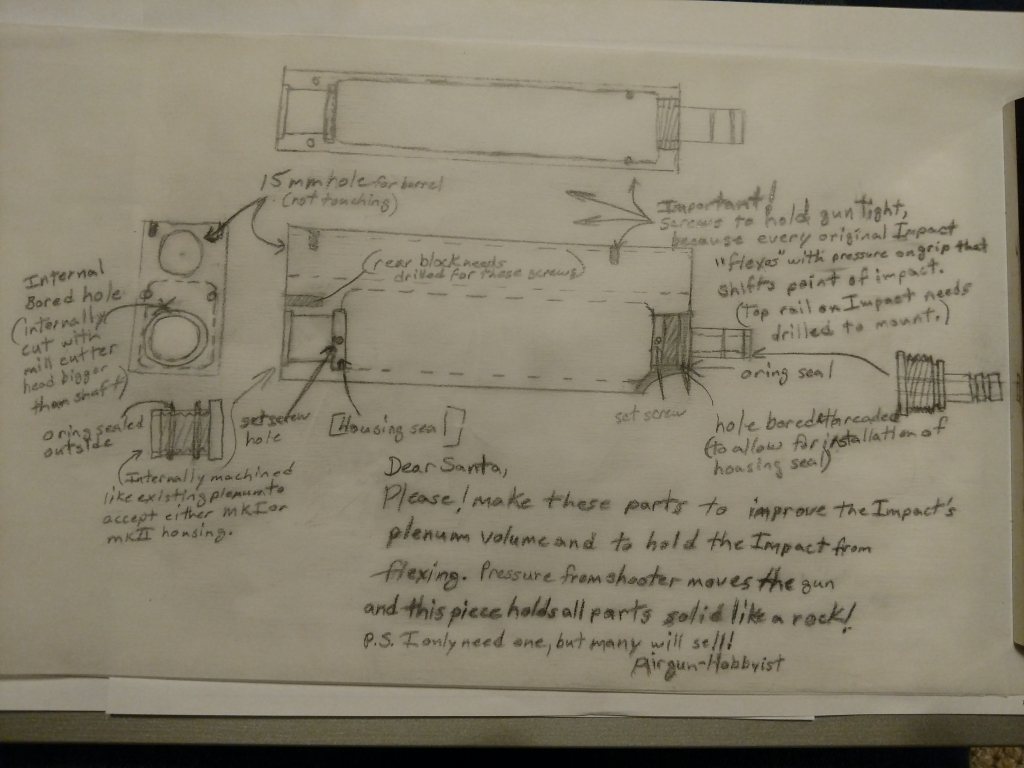 15mm hole for barrel
(not touching)
Important!
Screws to hold gun tight,
because every original Impact
"flexes" with pressure on grip that
shifts point of impact.
(Top rail on Impact needs
drilled to mount.)
(rear block needs
drilled for these screws)
Internal
Bored hole
(internally
cut with
mill cutter
head bigger
than shaft)
oring sealed
outside
(Internally machined
like existing plenum to
accept either mkI or
mkII housing.
set screw
hole
[Housing seal]
set screw
oring seal
hole bored & threaded
(to allow for installation of
housing seal)
Dear Santa,
Please! make these parts to improve the Impact's
plenum volume and to hold the Impact from
flexing. Pressure from shooter moves the gun
and this piece holds all parts solid like a rock!
P.S. I only need one, but many will sell!
Airgun-Hobbyist